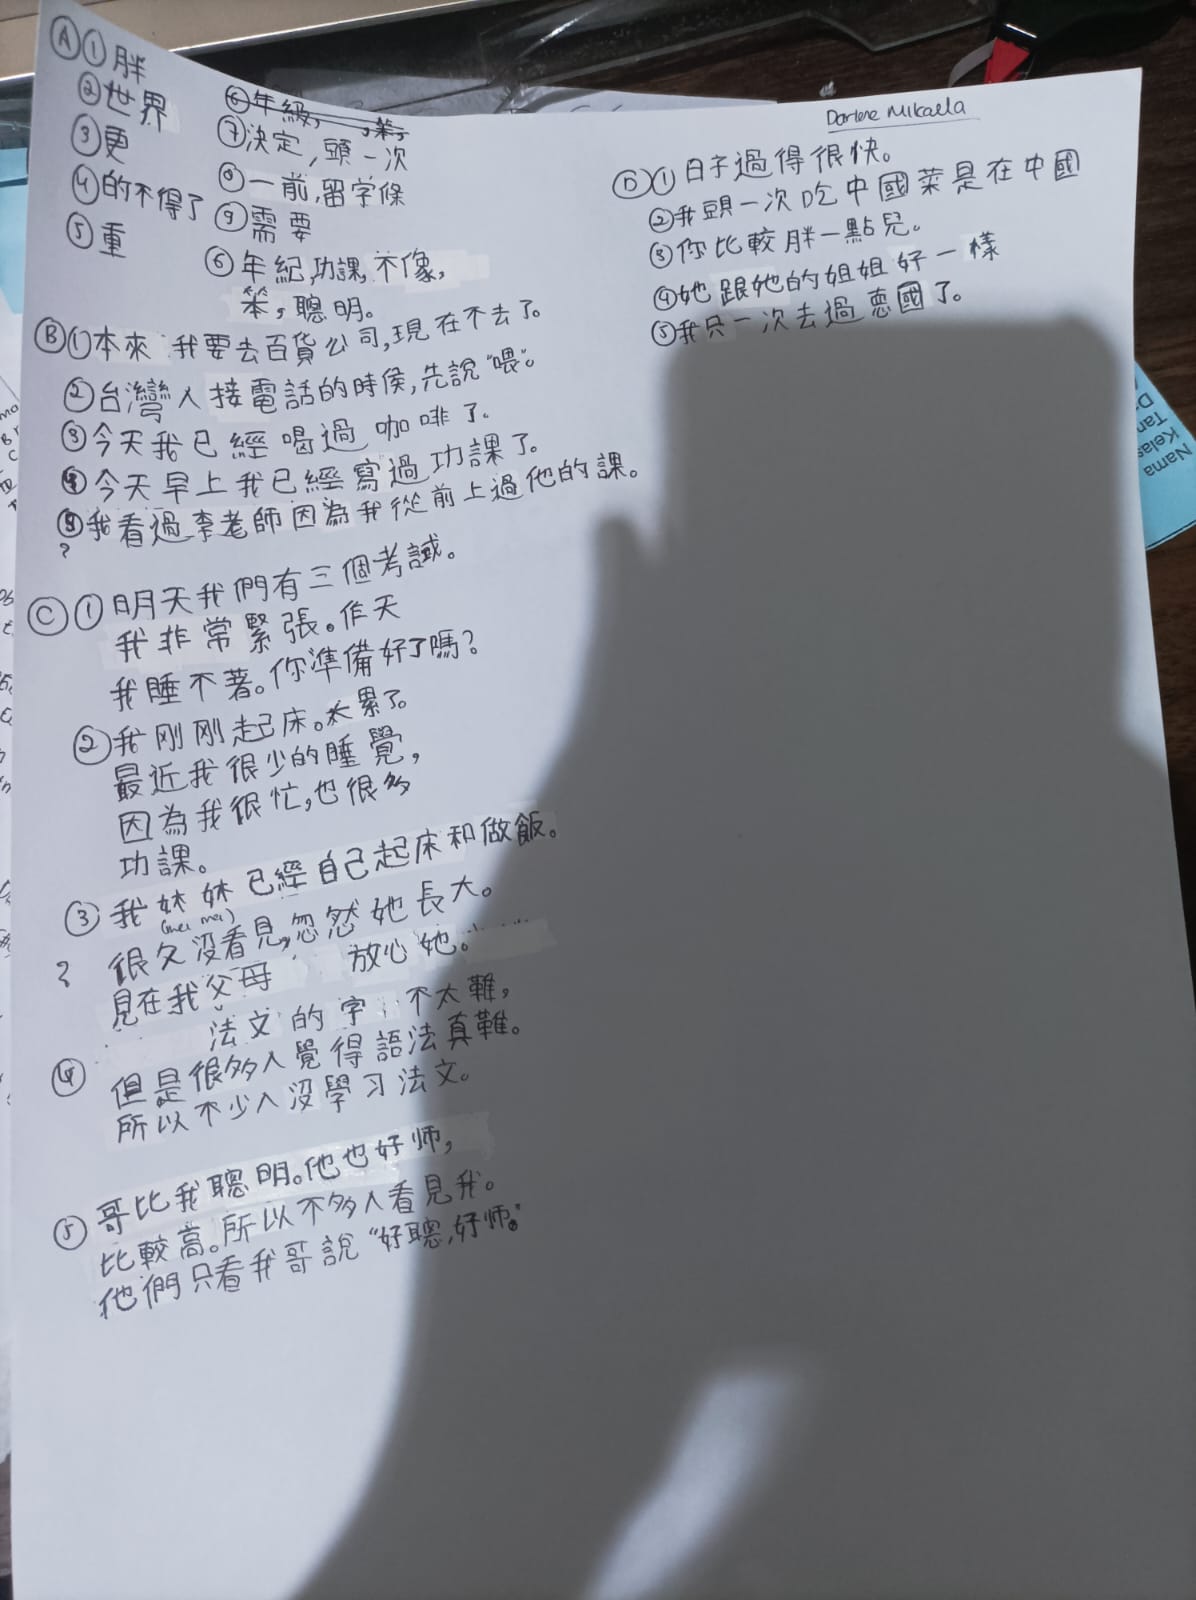 Darlene Mikaela
A ① 胖
② 世界
③ 更
④ 的不得了
⑤ 重
⑥ 年級,
⑦ 決定, 頭一次
⑧ 一前, 留字條
⑨ 需要
⑥ 年紀, 功課, 不像,
笨, 聰明。
B ① 本來 我要去百貨公司, 現在不去了。
② 台灣人 接電話的時候, 先說 "喂"。
③ 今天我已經喝過咖啡了。
④ 今天早上我已經寫過功課了。
⑤ 我看過李老師因為我從前上過他的課。
?
C ① 明天我們有三個考試。
我非常緊張。作天
我睡不著。你準備好了嗎?
② 我刚刚起床。太累了。
最近我很少的睡覺,
因為我很忙, 也很多
功課。
③ 我妹妹已經自己起床和做飯。
(mei mei)
很久沒看見, 忽然她長大。
? 見在我父母 放心她。
④ 法文的字 不太難,
但是很多人覺得語法真難。
所以不少人沒學习法文。
⑤ 哥比我聰明。他也好师,
比較高。所以不多人看見我。
他們只看我哥說 "好聰, 好师。"
D ① 日子過得很快。
② 我頭一次吃中國菜是在中國
③ 你比較胖一點兒。
④ 她跟她的姐姐好一樣
⑤ 我只一次去過德國了。
Nama
Kelas
Tan